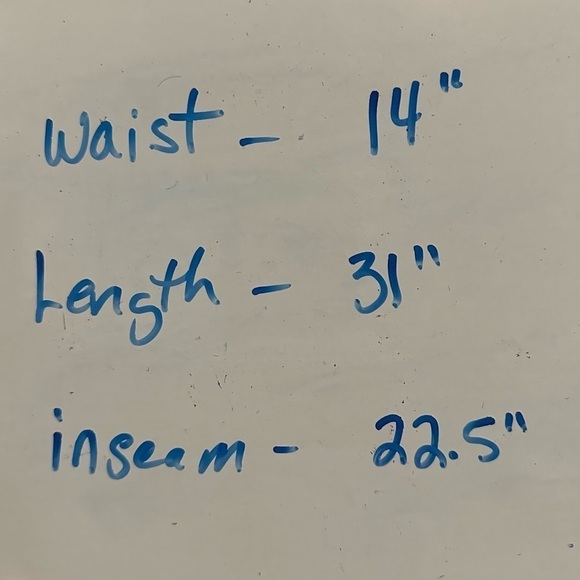 Waist - 14"
Length - 31"
inseam - 22.5"